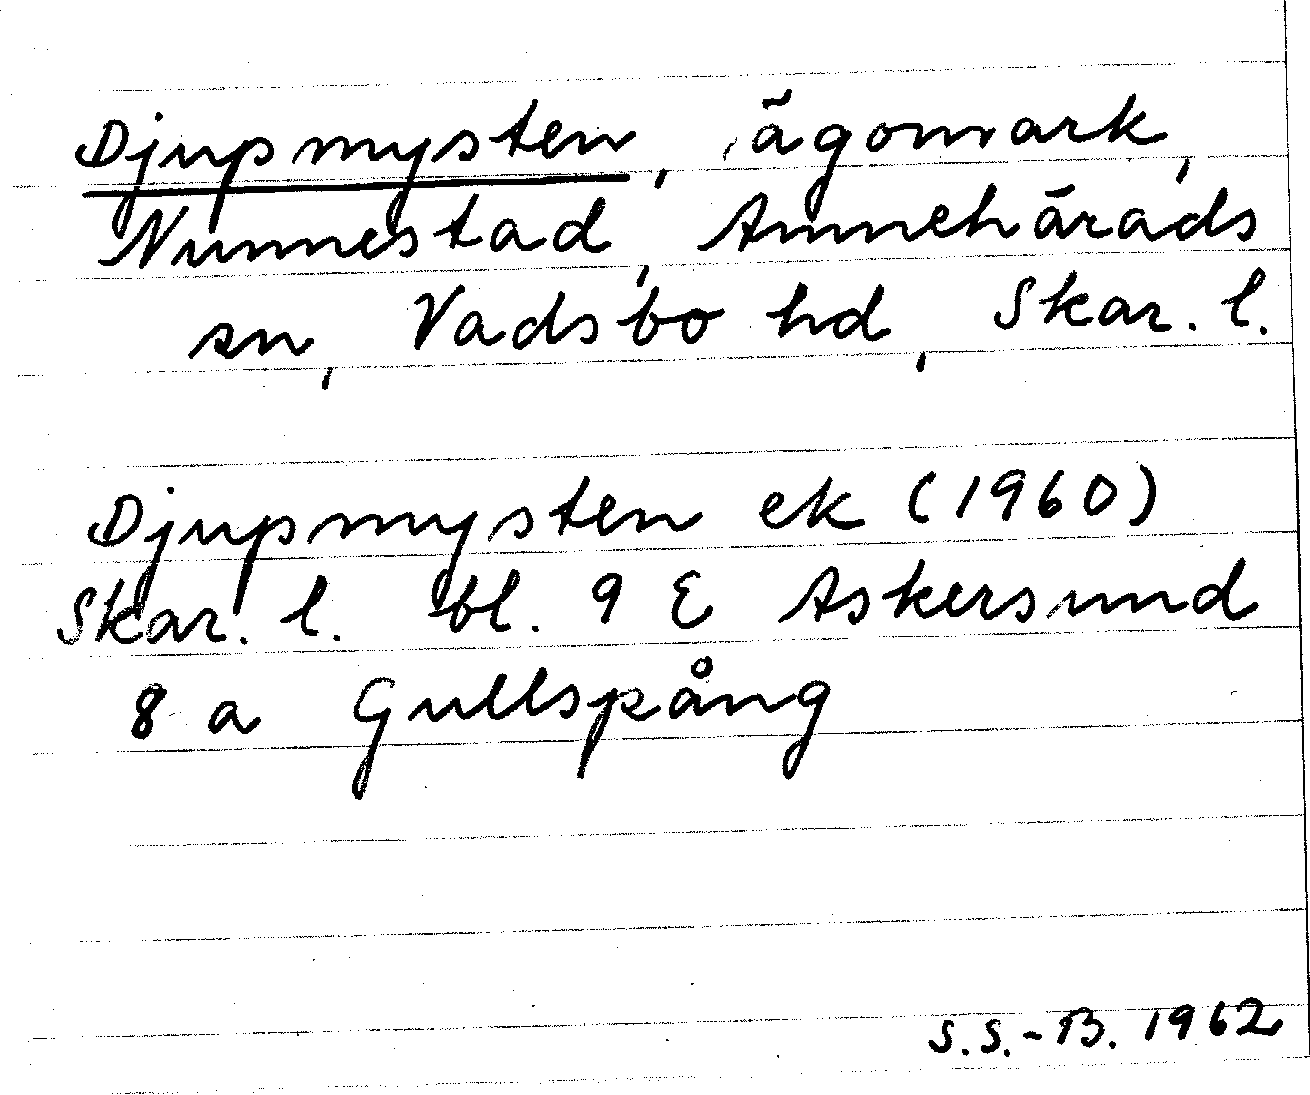 Djupmysten, ägomark,
Nunnestad, Amnehärads
sn, Vadsbo hd, Skar. l.
Djupmysten ek (1960)
Skar. l. bl. 9 E Askersund
8 a Gullspång
S.S.-B. 1962